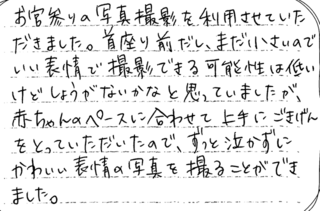 お宮参りの写真撮影を利用させていた
だきました。首座り前だし、まだ小さいので
いい表情で撮影できる可能性は低い
けどしょうがないかなと思っていましたが、
赤ちゃんのペースに合わせて上手にごきげん
をとっていただいたので、ずっと泣かずに
かわいい表情の写真を撮ることができ
ました。